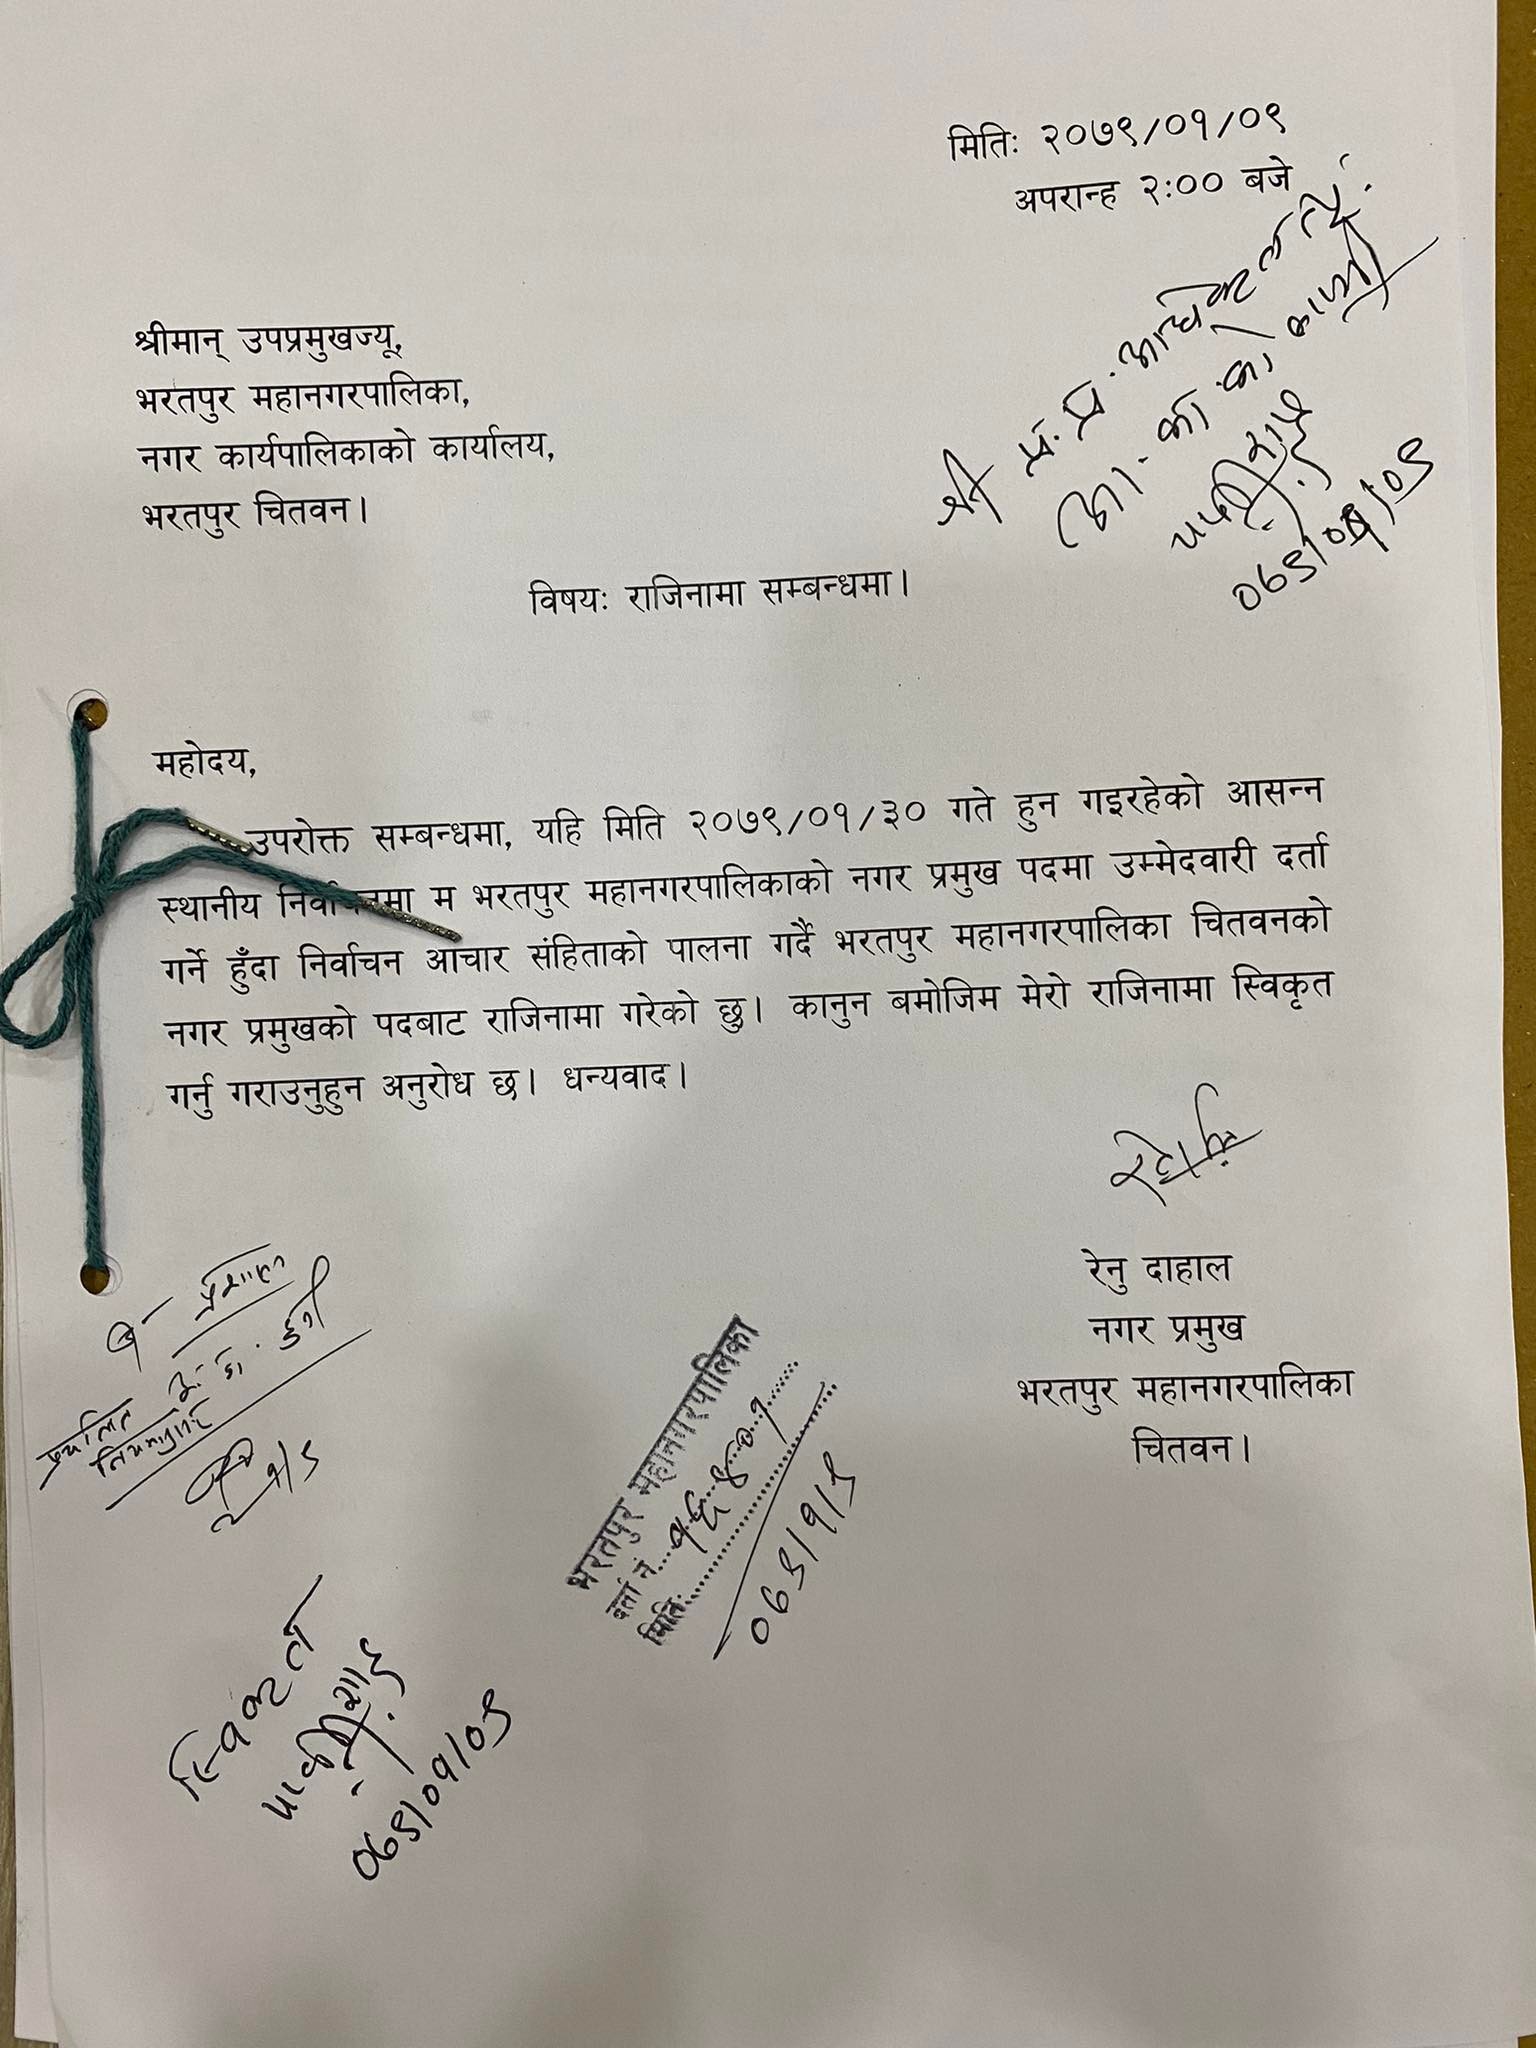 मितिः २०७९/०१/०९
अपरान्ह २:०० बजे
श्रीमान् उपप्रमुखज्यू,
भरतपुर महानगरपालिका,
नगर कार्यपालिकाको कार्यालय,
भरतपुर चितवन।
श्री प्र.प्र.
०७९/०१/०९
विषयः राजिनामा सम्बन्धमा।
महोदय,
उपरोक्त सम्बन्धमा, यहि मिति २०७९/०१/३० गते हुन गइरहेको आसन्न
स्थानीय निर्वाचनमा म भरतपुर महानगरपालिकाको नगर प्रमुख पदमा उम्मेदवारी दर्ता
गर्ने हुँदा निर्वाचन आचार संहिताको पालना गर्दै भरतपुर महानगरपालिका चितवनको
नगर प्रमुखको पदबाट राजिनामा गरेको छु। कानुन बमोजिम मेरो राजिनामा स्विकृत
गर्नु गराउनुहुन अनुरोध छ। धन्यवाद।
रेनु दाहाल
नगर प्रमुख
भरतपुर महानगरपालिका
चितवन।
प्रचलित
नियमानुसार
भरतपुर महानगरपालिका
दर्ता नं. १६४०१
मितिः
०७९/१/९
स्विकृत
०७९/०१/०९